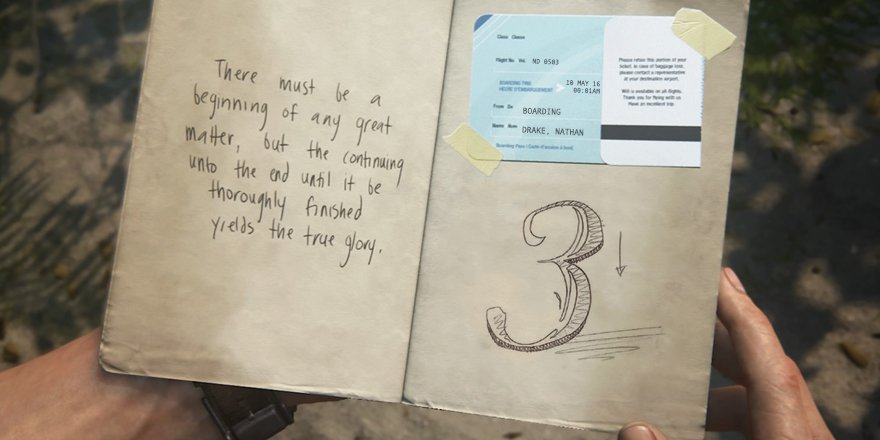 There must be a
beginning of any great
matter, but the continuing
unto the end until it be
thoroughly finished
yields the true glory.
Class Classe
Flight No Vol. ND 0503
BOARDING TIME
HEURE D'EMBARQUEMENT
10 MAY 16
00:01AM
From De BOARDING
Name Nom DRAKE, NATHAN
Boarding Pass | Carte d'accès à bord
Please retain this portion of your
ticket. In case of baggage lost,
please contact a representative
at your destination airport.
Wifi is available on all flights.
Thank you for flying with us
Have an excellent trip.
3